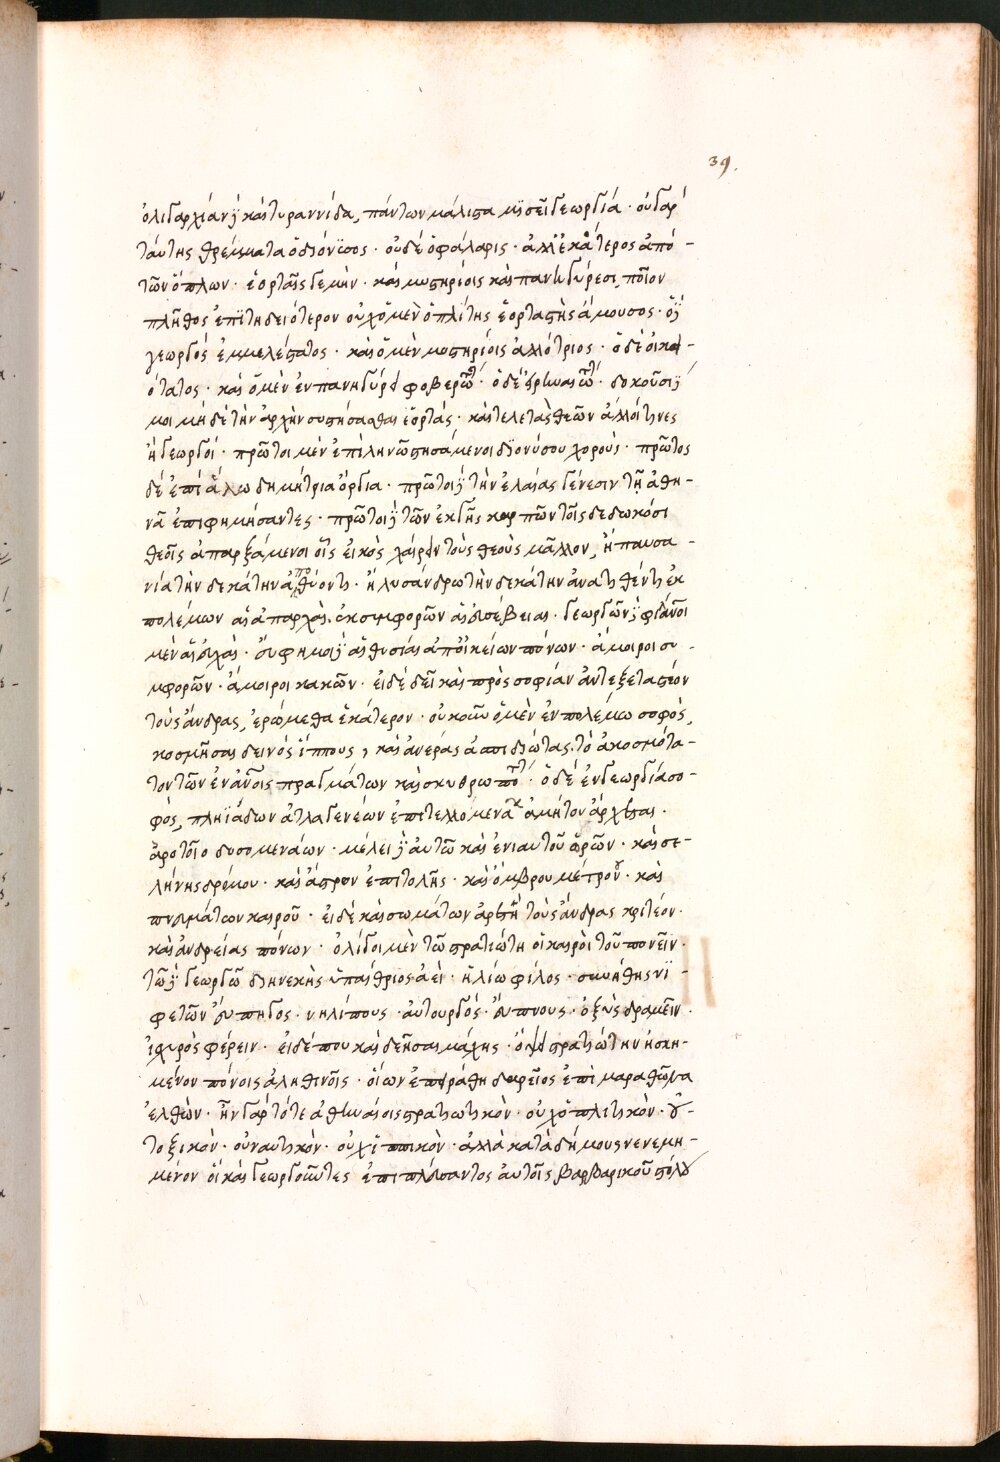 39.
ὀλιγαρχίαν δὲ καὶ τυραννίδα, πάντων μάλιστα μισεῖ γεωργία· οὐ γὰρ
ταύτης θρέμματα ὁ διόνϋσος· οὐδὲ ὁ φάλαρις· ἀλλ' ἑκάτερος ἀπὸ -
τῶν ὅπλων· ἑορταῖς γε μὴν· καὶ μυστηρίοις καὶ πανηγύρεσι, ποῖον
πλῆθος ἐπϊτηδειότερον οὐχ ὁ μὲν ὁπλίτης ἑορταστὴς ἄμουσος· ὁ δὲ
γεωργὸς ἐμμελέστατος· καὶ ὁ μὲν μυστηρίοις ἀλλότριος· ὁ δὲ οἰκει -
ότατος· καὶ ὁ μὲν ἐν πανηγύρει φοβερώτατος· ὁ δὲ εἰρηναιώτατος· δοκοῦσι δὲ
μοι μὴ δὲ τὴν ἀρχὴν συστήσασθαι ἑορτάς· καὶ τελετὰς θεῶν ἄλλοι τινες
ἢ γεωργοί· πρῶτοι μὲν ἐπὶ ληνῶ στησάμενοι διονύσου χορούς· πρῶτοι
δὲ ἐπὶ ἅλω δημήτρι ὄργια· πρῶτοι δὲ τὴν ἐλαίας γένεσιν τῇ ἀθη -
νᾶ ἐπιφημήσαντες· πρῶτοι δὲ τῶν ἐκ γῆς καρπῶν τοῖς δεδωκόσι
θεοῖς ἀπαρξάμενοι οἷς εἰκὸς χαίρειν τοὺς θεοὺς μᾶλλον, ἢ παυσα -
νία τὴν δεκάτην ἀποθύοντι· ἢ λυσάνδρω τὴν δεκάτην ἀνατιθέντι ἐκ
πολέμων αἱ ἀπαρχαὶ, ἐκ συμφορῶν αἱ εὐσέβειαι· γεωργῶν δὲ φιλάνθρωποι
μὲν αἱ εὐχαὶ· εὔφημοι δὲ αἱ θυσίαι ἀπ' οἰκείων πόνων· ἄμοιροι συ -
μφορῶν· ἄμοιροι κακῶν· εἰ δὲ δεῖ καὶ πρὸς σοφίαν ἀντεξεταστέον
τοὺς ἄνδρας, ἐρώμεθα ἑκάτερον· οὐκοῦν ὁ μὲν ἐν πολέμω σοφὸς,
κοσμῆσαι δεινὸς ἵππους, καὶ ἀνέρας ἀσπιδιώτας, τὸ ἀκοσμότα -
τον τῶν ἐν ἀνθρώποις πραγμάτων καὶ σκυθρωπότατον· ὁ δὲ ἐν γεωργία σο -
φὸς, πληϊάδων ἀτλαγενέων ἐπιτελλομενάων ἀμήτου ἄρχεται·
ἀρότοιο δυσομενάων· μέλει δὲ αὐτῶ καὶ ἐνιαυτοῦ ὡρῶν· καὶ σε -
λήνης δρόμου· καὶ ἄστρων ἐπιτολῆς· καὶ ὄμβρου μέτρου· καὶ
πνευμάτων καιροῦ· εἰ δὲ καὶ σωμάτων ἀρετῇ τοὺς ἄνδρας κριτέον·
καὶ ἀνδρείας πόνων· ὀλίγοι μὲν τῶ στρατιώτη οἱ καιροὶ τοῦ πονεῖν·
τῶ δὲ γεωργῶ διηνεκὴς ὑπαίθριος ἀεὶ· ἡλίω φίλος· συνήθης νϊ -
φετῶν εὔπηγος· νηλίπους· αὐτουργὸς· εὔπνους· ὀξὺς δραμεῖν·
ἰσχυρὸς φέρειν· εἰ δέ που καὶ δεῆσαι μάχης· ὄψει στρατιώτην ἠσκη -
μένον πόνοις ἀληθινοῖς· οἵων ἐπειράθη δαρεῖος ἐπὶ μαραθῶνα
ἐλθὼν· ἦν γὰρ τότε ἀθηναίοις στρατιωτικὸν· οὐχ ὁπλιτικὸν· οὐ -
τοξικὸν· οὐ ναυτικὸν· οὐχ ἱππικὸν· ἀλλὰ κατὰ δήμους νενεμη -
μένον οἳ καὶ γεωργοῦντες ἐπιπλεύσαντος αὐτοῖς βαρβαρικοῦ στόλου